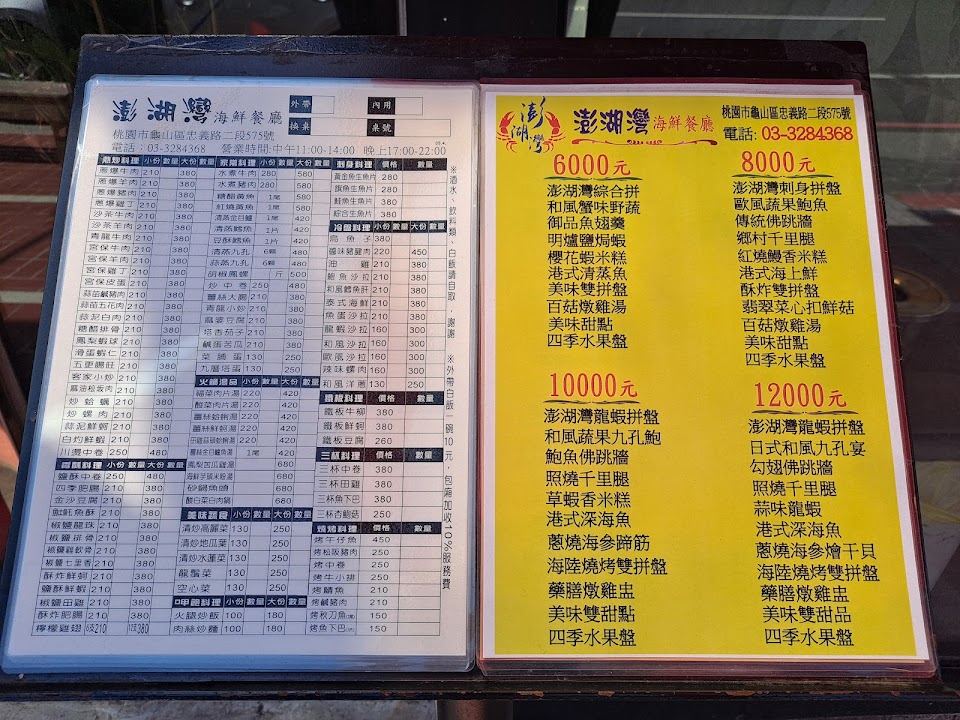 澎湖灣 海鮮餐廳
外帶 內用
換桌 桌號
桃園市龜山區忠義路二段575號
電話：03-3284368 營業時間:中午11:00-14:00 晚上17:00-22:00
熱炒料理 小份 數量 大份 數量
蔥爆牛肉 210 380
蔥爆羊肉 210 380
蔥爆豬肉 210 380
蔥爆雞丁 210 380
沙茶牛肉 210 380
沙茶羊肉 210 380
青龍牛肉 210 380
宮保羊肉 210 380
宮保雞丁 210 380
宮保皮蛋 210 380
蒜苗鹹豬肉 210 380
蒜苗五花肉 210 380
蒜泥白肉 210 380
糖醋排骨 210 380
鳳梨蝦球 210 380
滑蛋蝦仁 210 380
五更腸旺 210 380
客家小炒 210 380
麻油松坂肉 210 380
炒蛤蠣 210 380
炒螺肉 210 380
蒜泥鮮蚵 210 380
白灼鮮蝦 210 380
川燙中卷 250 480
香酥料理 小份 數量 大份 數量
鹽酥中卷 250 480
四季肥腸 210 380
金沙豆腐 210 380
椒鹽龍珠 210 380
椒鹽排骨 210 380
椒鹽雞軟骨 210 380
椒鹽七里香 210 380
酥炸鮮蚵 210 380
鹽酥鮮蝦 210 380
椒鹽田雞 210 380
酥炸肥腸 210 380
檸檬雞翅 6隻210 12隻380
家常料理 小份 數量 大份 數量
水煮牛肉 280 580
水煮豬肉 280 580
糖醋黃魚 1尾 580
紅燒黃魚 1尾 580
清蒸金目鱸 1尾
清蒸鱈魚 1片 420
豆酥鱈魚 1片 420
清蒸九孔 6顆 480
蒜蒸九孔 6顆 480
胡椒鳳螺 1斤 500
炒中卷 250 480
薑絲大腸 210 380
青龍小炒 210 380
麻婆豆腐 210 380
塔香茄子 210 380
鹹蛋苦瓜 210 380
菜脯蛋 130 250
九層塔蛋 130 250
火鍋湯品 小份 數量 大份 數量
福菜肉片湯 220 420
酸菜肉片湯 220 420
薑絲蛤蜊湯 220 420
薑絲鮮蚵湯 220 420
薑絲金目鱸魚湯 1尾 420
鳳梨苦瓜雞湯 680
海鮮芋頭米粉湯 680
砂鍋魚頭 680
酸白菜白肉鍋 680
美味蔬食 小份 數量 大份 數量
清炒高麗菜 130 250
清炒地瓜葉 130 250
清炒水蓮菜 130 250
龍鬚菜 130 250
空心菜 130 250
呷飽料理 小份 數量 大份 數量
火腿炒飯 100 180
肉絲炒麵 100 180
刺身料理 價格 數量
黃金魚生魚片 280
旗魚生魚片 280
鮭魚生魚片 380
綜合生魚片 380
冷盤料理 小份 數量 大份 數量
烏魚子 380
醬味豬腱肉 220 450
油雞 210 380
鮑魚沙拉 210 380
和風鱈魚肝 210 380
泰式海鮮 210 380
魚蛋沙拉 210 380
龍蝦沙拉 160 300
和風沙拉 160 300
歐風沙拉 160 300
辣味螺肉 160 300
和風洋蔥 130 250
鐵板料理 價格 數量
鐵板牛柳 380
鐵板鮮蚵 380
鐵板豆腐 260
三杯料理 價格 數量
三杯中卷 380
三杯田雞 380
三杯魚下巴 380
三杯杏鮑菇 250
燒烤料理 價格 數量
烤午仔魚 450
烤松阪豬肉 250
烤中卷 250
烤牛小排 250
烤鯖魚 250
烤鹹豬肉 210
烤秋刀魚 150
烤魚下巴 150
※酒水、飲料類、白飯請自取，謝謝 ※外帶白飯一碗10元，包廂加收10%服務費
澎湖灣
澎湖灣 海鮮餐廳
桃園市龜山區忠義路二段575號
電話: 03-3284368
6000元
澎湖灣綜合拼
和風蟹味野蔬
御品魚翅羹
明爐鹽焗蝦
櫻花蝦米糕
港式清蒸魚
美味雙拼盤
百菇燉雞湯
美味甜點
四季水果盤
8000元
澎湖灣刺身拼盤
歐風蔬果鮑魚
傳統佛跳牆
鄉村千里腿
紅燒鰻香米糕
港式海上鮮
酥炸雙拼盤
翡翠菜心扣鮮菇
百菇燉雞湯
美味甜點
四季水果盤
10000元
澎湖灣龍蝦拼盤
和風蔬果九孔鮑
鮑魚佛跳牆
照燒千里腿
草蝦香米糕
港式深海魚
蔥燒海參蹄筋
海陸燒烤雙拼盤
藥膳燉雞盅
美味雙甜點
四季水果盤
12000元
澎湖灣龍蝦拼盤
日式和風九孔宴
勾翅佛跳牆
照燒千里腿
蒜味龍蝦
港式深海魚
蔥燒海參燴干貝
海陸燒烤雙拼盤
藥膳燉雞盅
美味雙甜品
四季水果盤